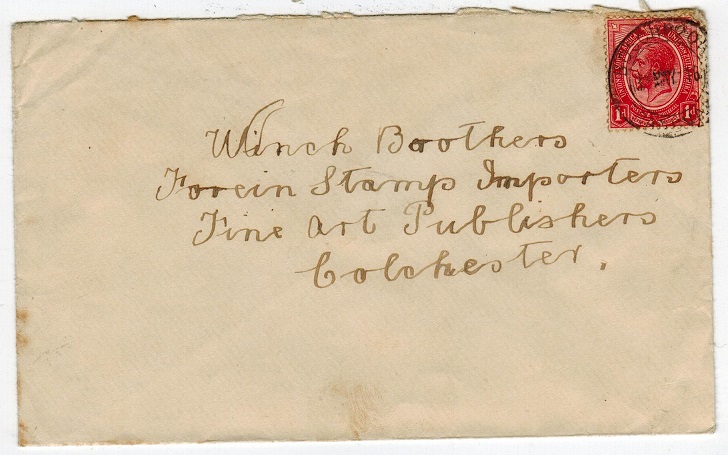 Winch Brothers
Forein Stamp Importers
Fine Art Publishers
Colchester.
1d 1d